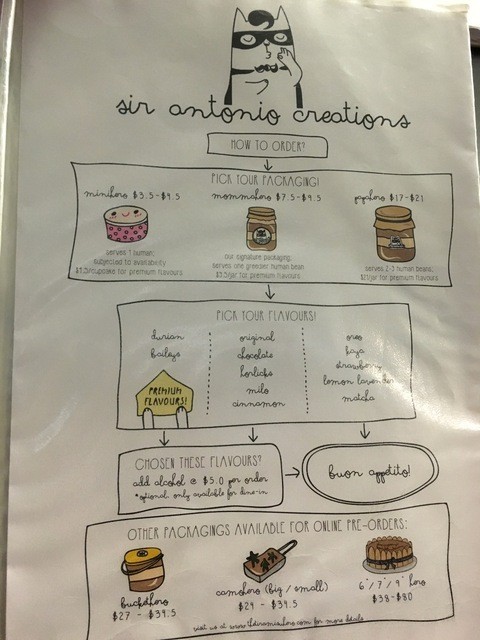 sir antonio creations
HOW TO ORDER?
PICK YOUR PACKAGING!
minihero $3.5-$4.5
mommahero $7.5-$9.5
papahero $17-$21
serves 1 human;
subjected to availability
$1.5/cupcake for premium flavours
our signature packaging;
serves one greedier human bean
$3.5/jar for premium flavours
serves 2-3 human beans;
$21/jar for premium flavours
PICK YOUR FLAVOURS!
durian
baileys
PREMIUM
FLAVOURS!
original
chocolate
horlicks
milo
cinnamon
oreo
kaya
strawberry
lemon lavender
matcha
CHOSEN THESE FLAVOURS?
add alcohol @ $5.0 per order
*optional. only available for dine-in
buon appetito!
OTHER PACKAGINGS AVAILABLE FOR ONLINE PRE-ORDERS:
buckethero
$27 - $39.5
camohero (big / small)
$29 - $39.5
6"/7"/9" hero
$38-$80
visit us at www.thetiramisuhero.com for more details